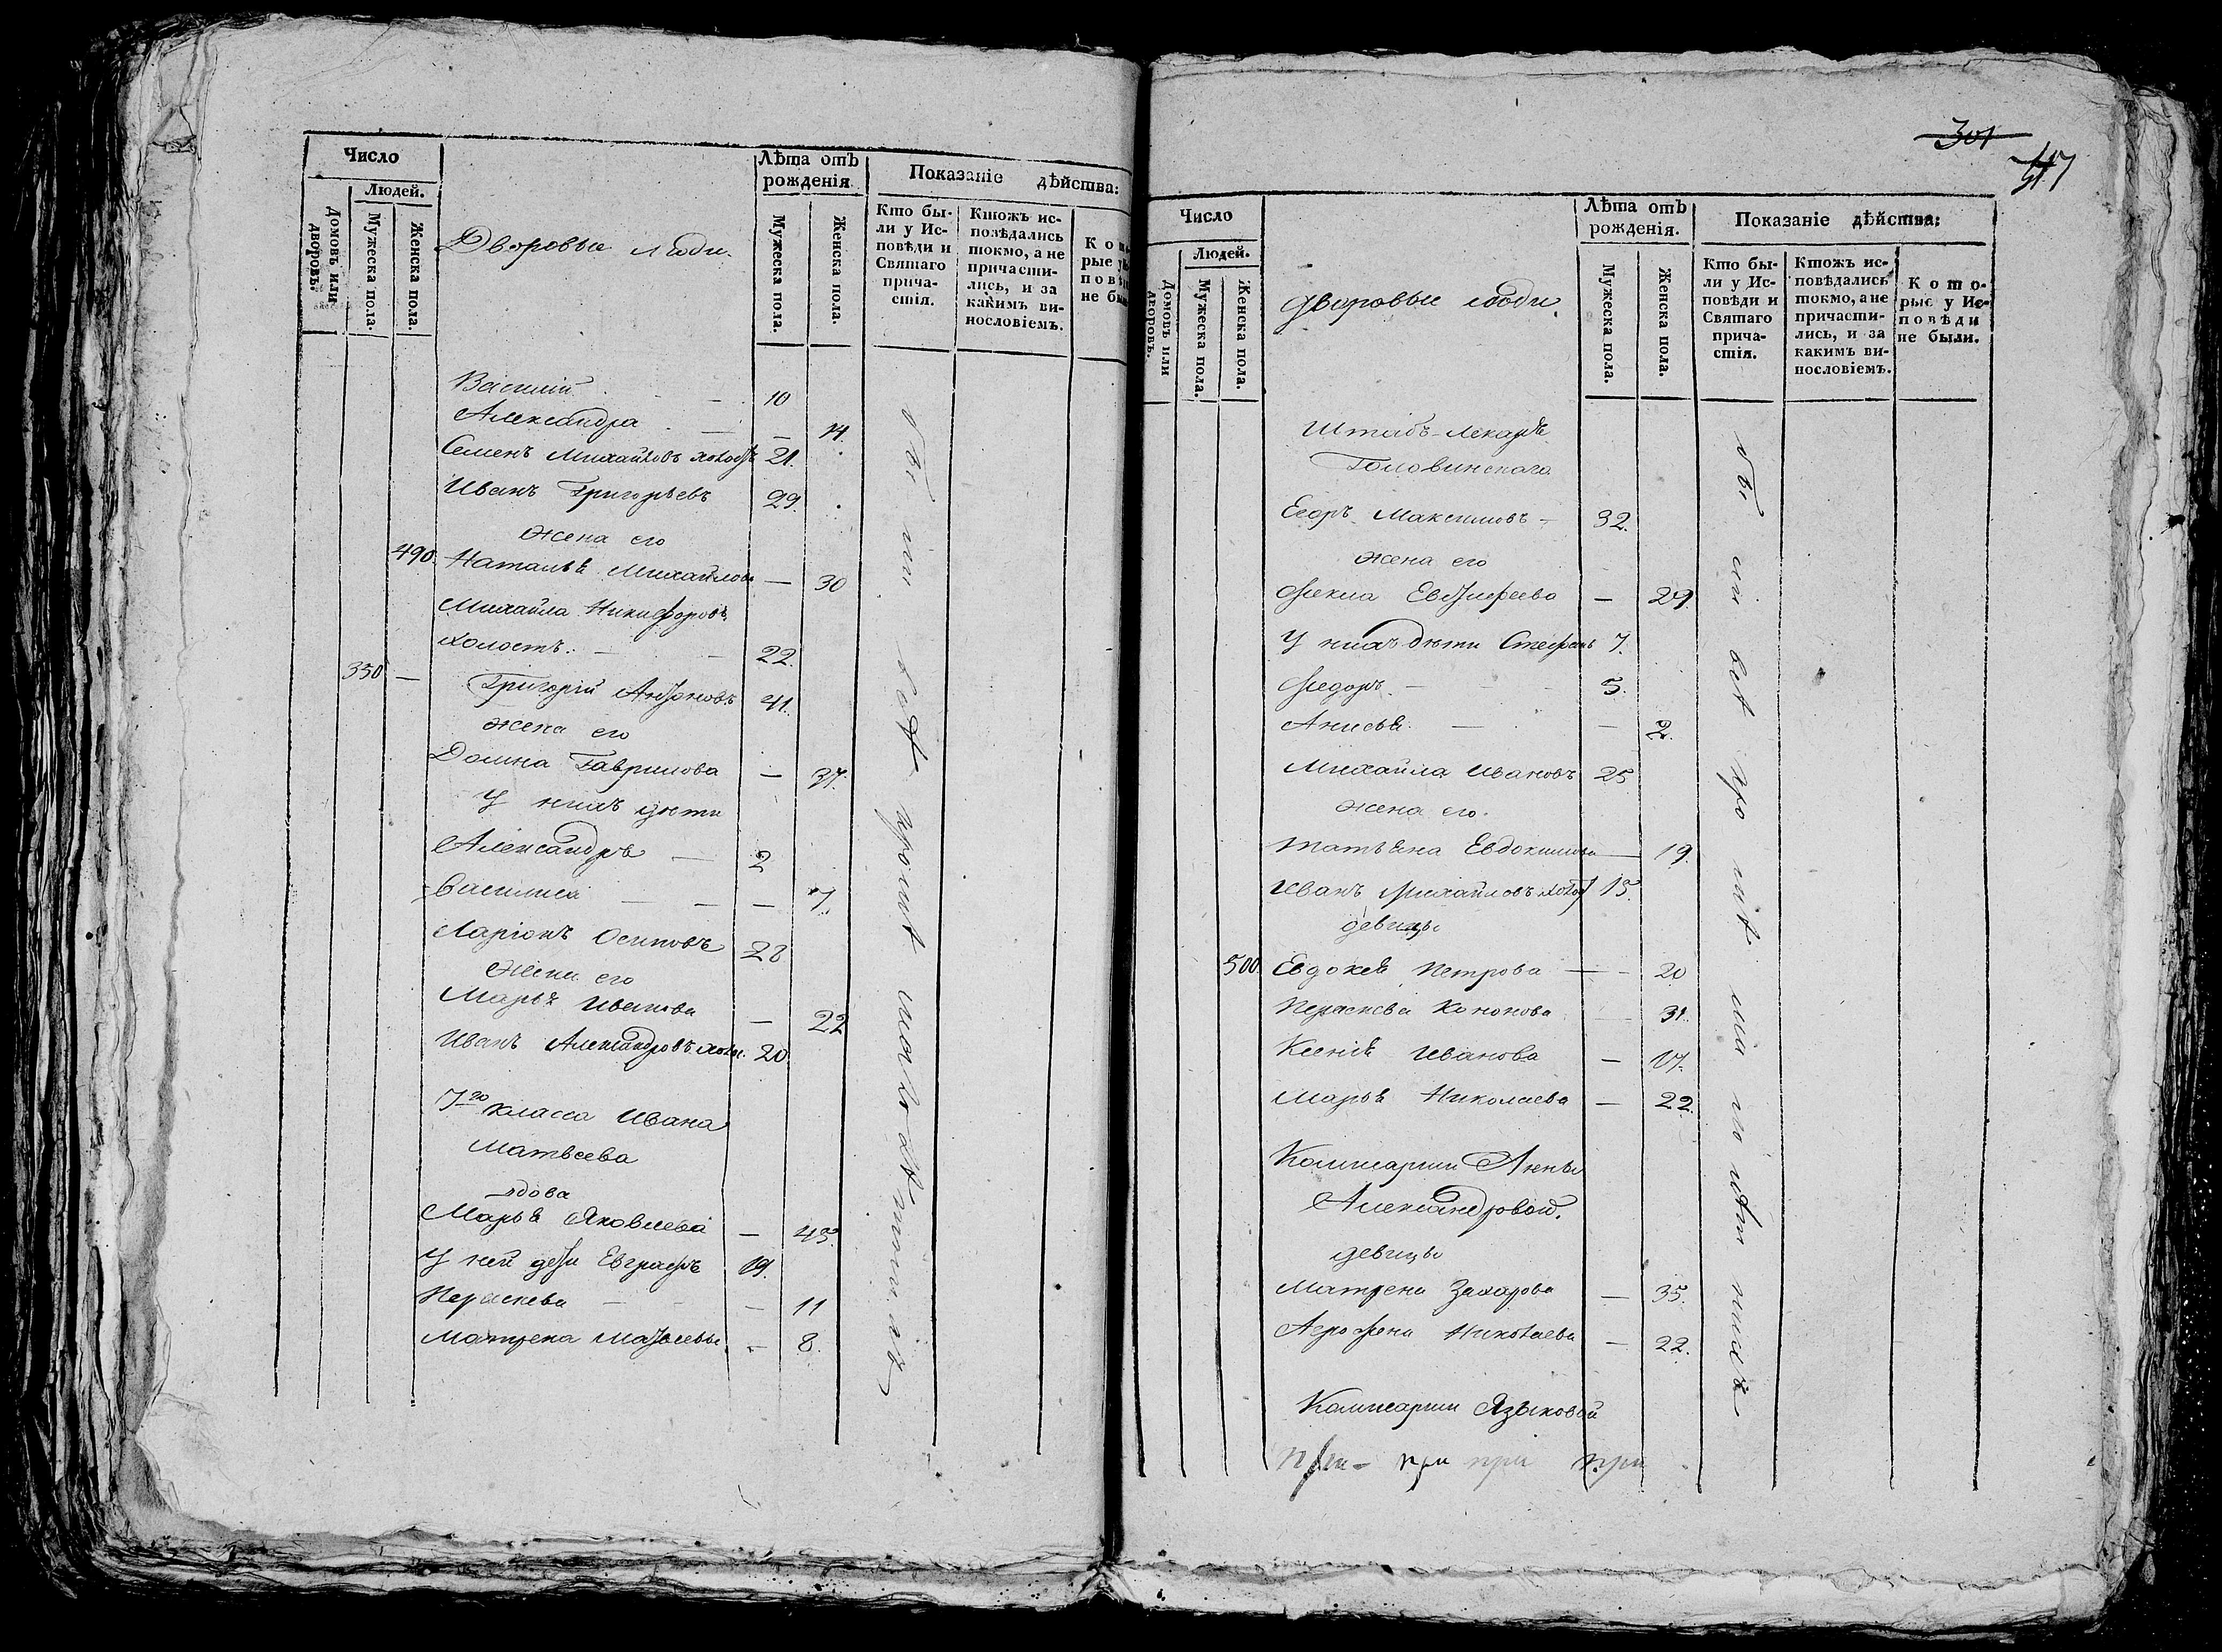 Число
Людей.
Домовъ или дворовъ.
Мужеска пола.
Женска пола.
Дворовые люди.
Лѣта отъ рожденія
Мужеска пола.
Женска пола.
Показаніе дѣйства:
Кто бы-
ли у Ис-
повѣди и
Святаго
прича-
стія.
Ктожъ ис-
повѣдались
токмо, а не
причасти-
лись, и за
какимъ ви-
нословіемъ.
Василій - - 10
Александра - - 14.
Семенъ Михайловъ холостъ 21.
Иванъ Григорьевъ 29.
жена его
490. Наталья Михайлова — 30
Михайла Никифоровъ
холостъ. - - 22.
350 — Григорій Антоновъ 41.
жена его
Домна Гаврилова — 37.
У нихъ дѣти
Александръ — 2
Василиса — — — 7.
Ларіонъ Осиповъ 28
жена его
Марья Иванова — 22
Иванъ Александровъ холос. 20.
7го класса Ивана
Матвеева
вдова
Марья Яковлева — 45.
У ней дети Евграфъ 19.
Параскева — - — 11
Матрена Матвеевы. - 8.
301
Число
Людей.
Домовъ или дворовъ.
Мужеска пола.
Женска пола.
дворовые люди.
Лѣта отъ рожденія.
Мужеска пола.
Женска пола.
Показаніе дѣйства:
Кто бы-
ли у Ис-
повѣди и
Святаго
прича-
стія.
Ктожъ ис-
повѣдались
токмо, а не
причасти-
лись, и за
какимъ ви-
нословіемъ.
Кото-
рые у Ис-
повѣди
не были.
Штабъ-Лекаря
Головинскаго
Егоръ Максимовъ - 32.
жена его
Фекла — 29
У нихъ дѣти Стефанъ 7.
Федоръ - - 5.
Анисья. — — 2.
Михайла Ивановъ 25
жена его.
Татьяна Евдокимова — 19.
Иванъ Михайловъ холос 15.
девицы
500. Евдокея Петрова — - 20
Параскева Кононова — 31.
Ксенія Иванова — 17.
Марья Николаева — 22.
Коммисарши Анны
Александровой.
девицы
Матрена Захарова — 35.
Агрофена Николаева — 22.
Коммисарши Языковой
при- при при при